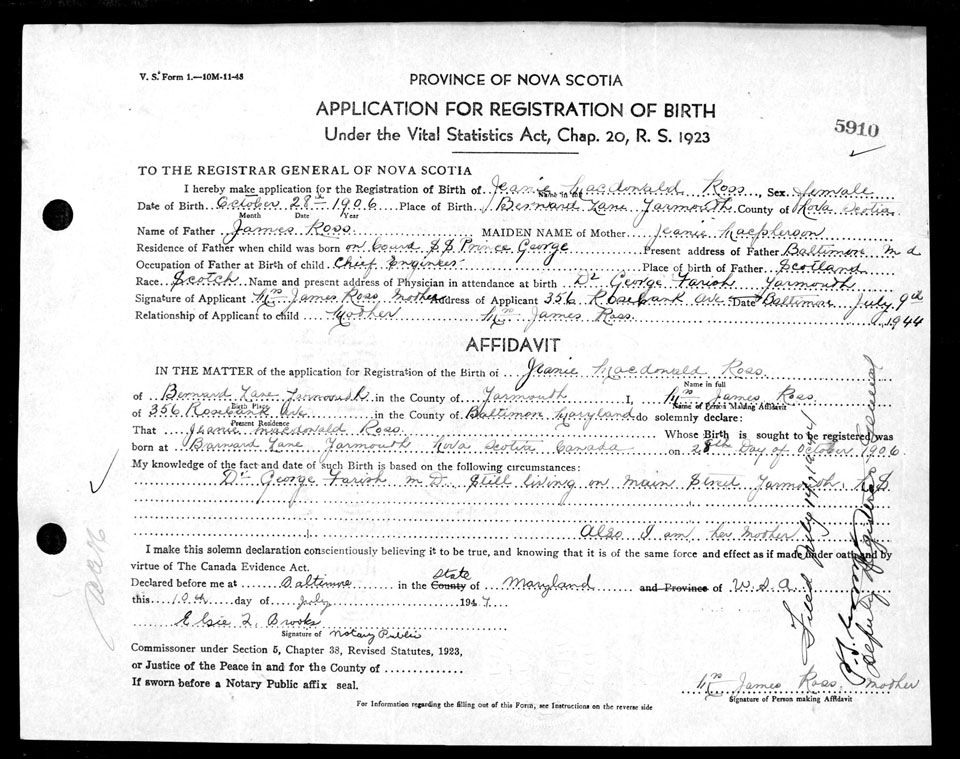 V. S. Form 1.—10M-11-43
PROVINCE OF NOVA SCOTIA
APPLICATION FOR REGISTRATION OF BIRTH
5910
Under the Vital Statistics Act, Chap. 20, R. S. 1923
TO THE REGISTRAR GENERAL OF NOVA SCOTIA
I hereby make application for the Registration of Birth of Jeanie Macdonald Ross, Sex female
Name in full
Date of Birth October 28th 1906 Place of Birth Bernard Lane Yarmouth County of Nova Scotia
Month Date Year
Name of Father James Ross MAIDEN NAME of Mother Jeanie Macpherson
Residence of Father when child was born on board SS Prince George Present address of Father Baltimore Md
Occupation of Father at Birth of child Chief Engineer Place of Birth of Father Scotland
Race Scotch Name and present address of Physician in attendance at birth Dr George Farish Yarmouth
Signature of Applicant Mrs James Ross Mother Address of Applicant 356 Rosebank Ave Date Baltimore July 9th
Relationship of Applicant to child Mother Mrs James Ross. 1944
AFFIDAVIT
IN THE MATTER of the application for Registration of the Birth of Jeanie Macdonald Ross.
Name in full
of Bernard Lane Yarmouth in the County of Yarmouth I, Mrs James Ross
Birth Place Name of Person Making Affidavit
of 356 Rosebank Ave in the County of Baltimore Maryland do solemnly declare:
Present Residence
That Jeanie Macdonald Ross. Whose Birth is sought to be registered was
born at Barnard Lane Yarmouth Nova Scotia Canada on 28th Day of October 1906.
My knowledge of the fact and date of such Birth is based on the following circumstances:
Dr George Farish M D. Still living on Main Street Yarmouth, N S
Also I am her Mother
I make this solemn declaration conscientiously believing it to be true, and knowing that it is of the same force and effect as if made under oath and by
virtue of The Canada Evidence Act.
Declared before me at Baltimore in the County State of Maryland and Province of U.S.A.
this 10th day of July 1944
Elsie L. Brooks
Signature of Notary Public
Commissoner under Section 5, Chapter 38, Revised Statutes, 1923,
or Justice of the Peace in and for the County of
If sworn before a Notary Public affix seal.
Mrs James Ross. Mother
Signature of Person making Affidavit
For Information regarding the filling out of this Form, see Instructions on the reverse side
Filed July 14, 1944
Deputy Registrar General